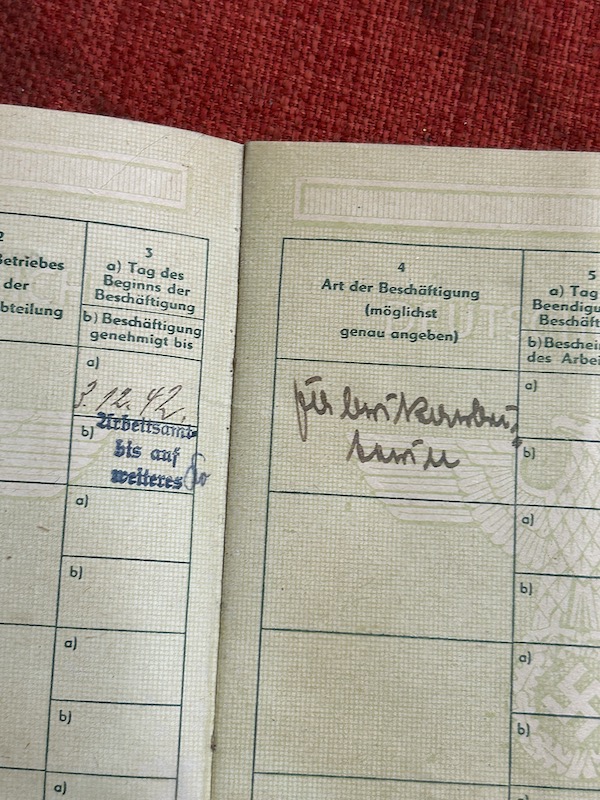 2
Betriebes
der
bteilung
3
a) Tag des
Beginns der
Beschäftigung
b) Beschäftigung
genehmigt bis
a)
3.12.42.
b) Arbeitsamt
bis auf
weiteres
a)
b)
a)
b)
a)
4
Art der Beschäftigung
(möglichst
genau angeben)
5
a) Tag
Beendigu
Beschäft
b) Beschei
des Arbei
a)
b)
a)
b)
a)
b)